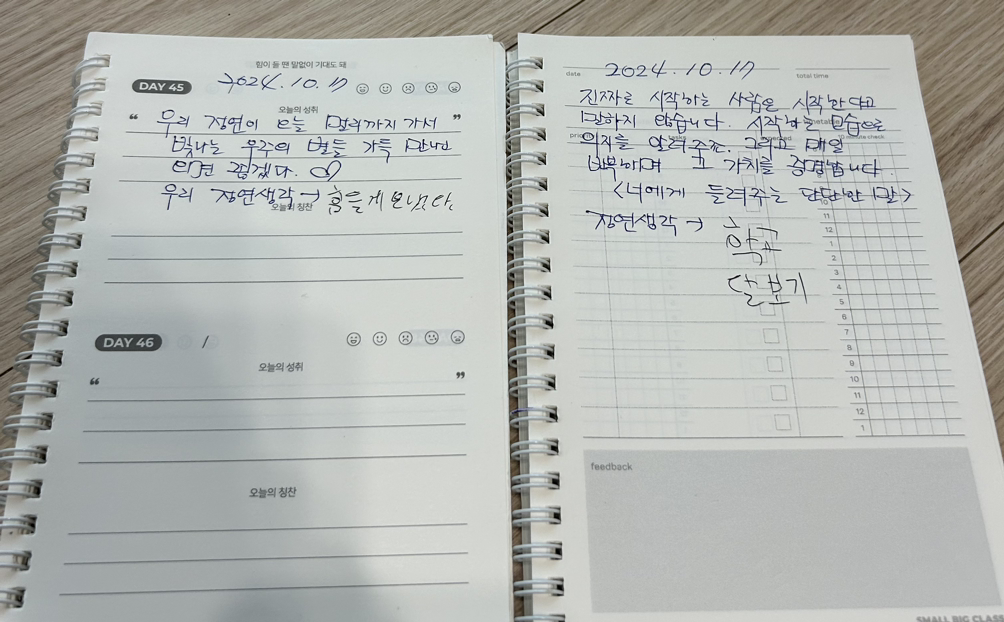 힘이 들 땐 말없이 기대도 돼
DAY 45 2024.10.17
오늘의 성취
“ 우리 정연이 오늘 멀리까지 가서 ”
빛나는 우주의 별들 가득 만나고
오면 좋겠다.
우리 정연생각→ 힘들게 보냈다.
오늘의 칭찬
DAY 46 /
오늘의 성취
“ ”
오늘의 칭찬
date 2024.10.17 total time
진짜를 시작하는 사람은 시작한다고
말하지 않습니다. 시작하는 모습으로
의지를 알려주죠. 그리고 매일
반복하며 그 가치를 증명합니다.
<너에게 들려주는 단단한 말>
정연생각→
달 보기
11
12
1
2
3
4
5
6
7
8
9
10
11
12
1
feedback
SMALL BIG CLASS